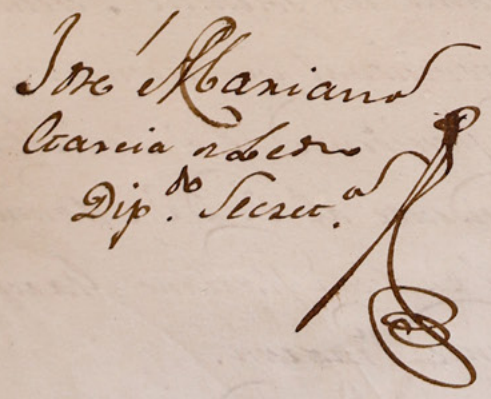 José Mariano
Garcia
Dip.do Secret.o